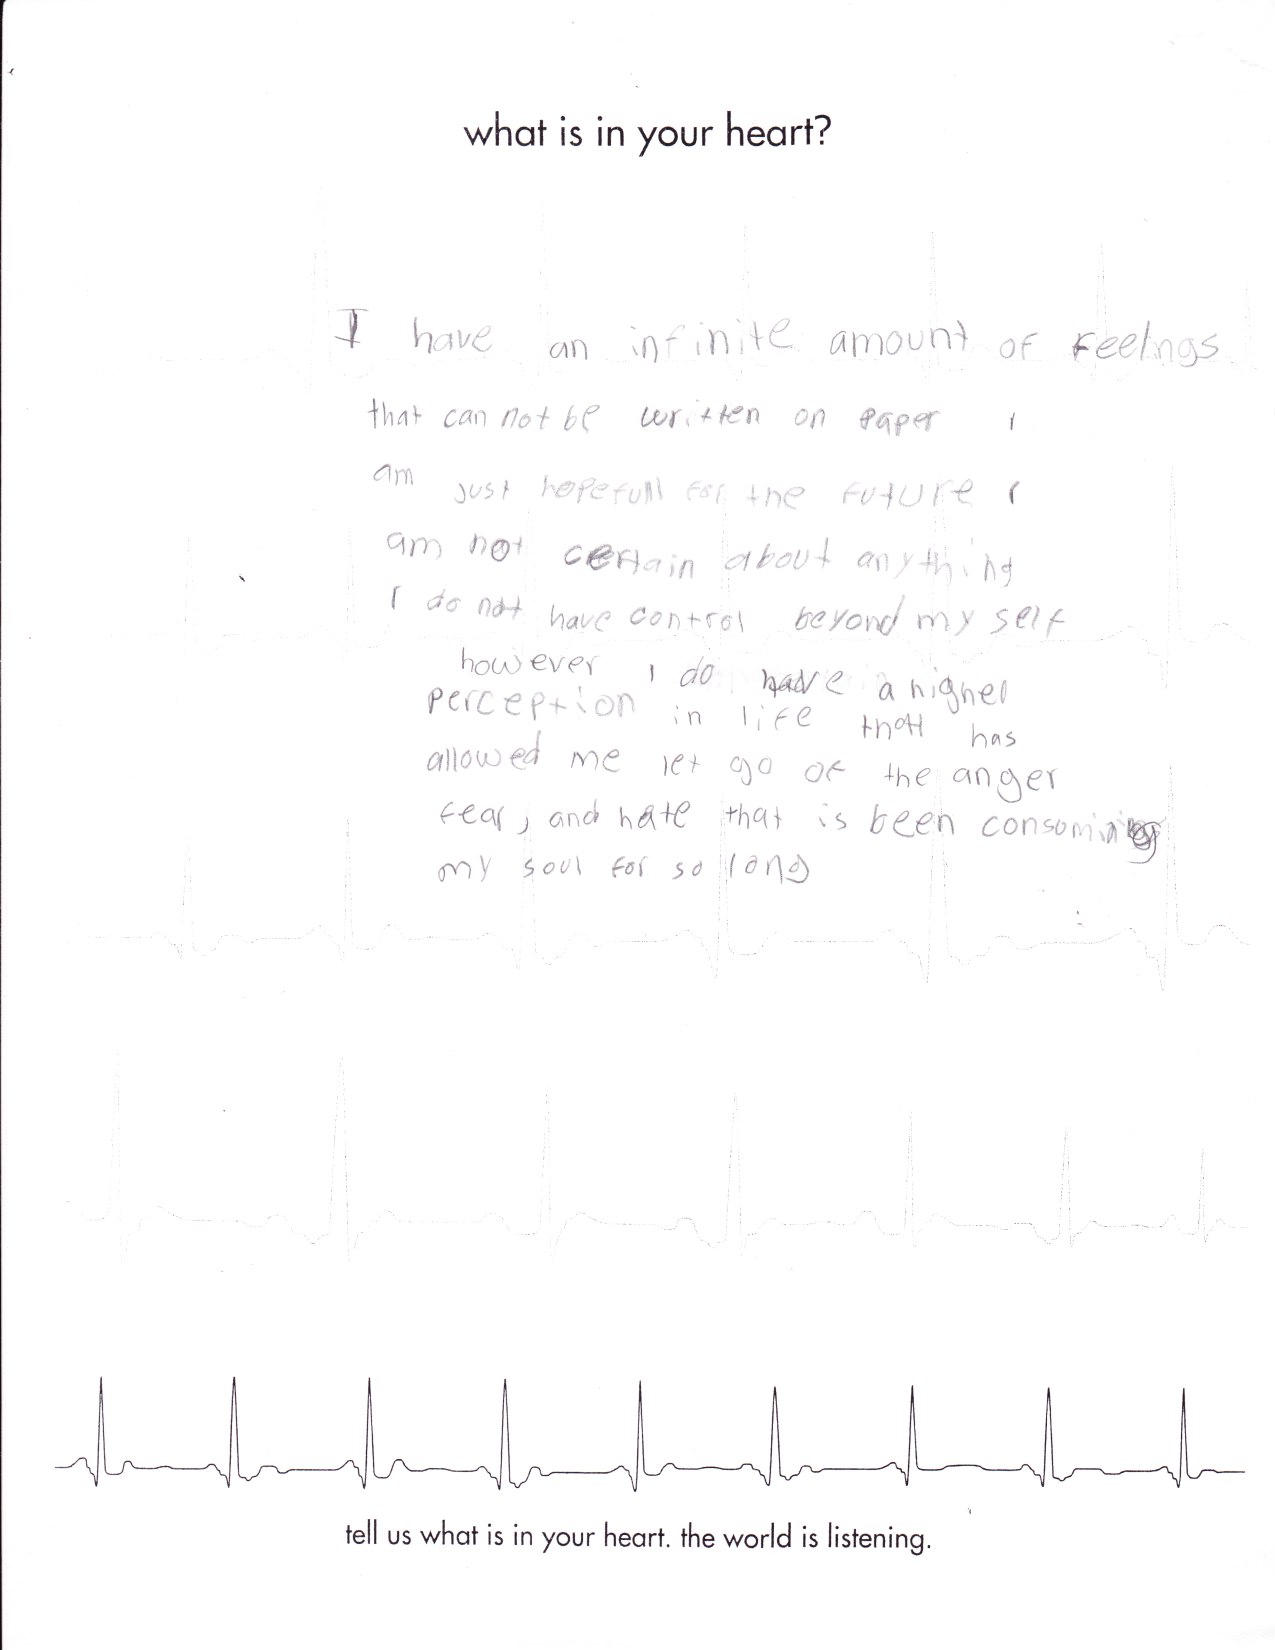 what is in your heart?
I have an infinite amount of feelings
that can not be written on paper I
am just hopefull for the future I
am not certain about anything
I do not have control beyond my self
however I do have a higher
perception in life that has
allowed me let go of the anger
fear, and hate that is been consoming
my soul for so long
tell us what is in your heart. the world is listening.